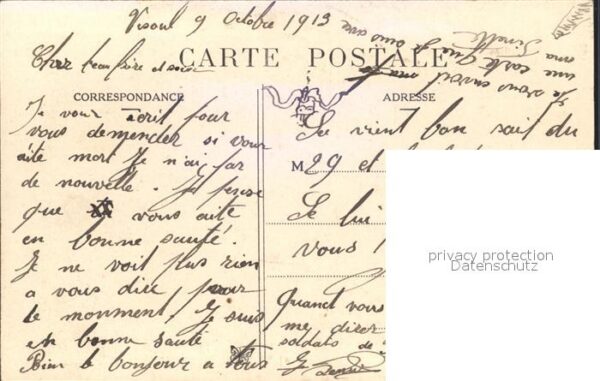 9 Octobre 1913
CARTE POSTALE
Cher beau frère et
CORRESPONDANCE
ADRESSE
Je vous écrit pour
vous demender si vous
aite mort Je n'ai par
de nouvelle. Je pense
que vous aite
en bonne santé.
Je ne voit plus rien
a vous dire pour
le monment. Je suis
en bonne santé
Bien le bonjour a tous
Je vous envoit
une carte que
ma
Le vient bon sait du
M 29 et
Je lui
vous
Quand vous
me direz
soldats de
privacy protection
Datenschutz